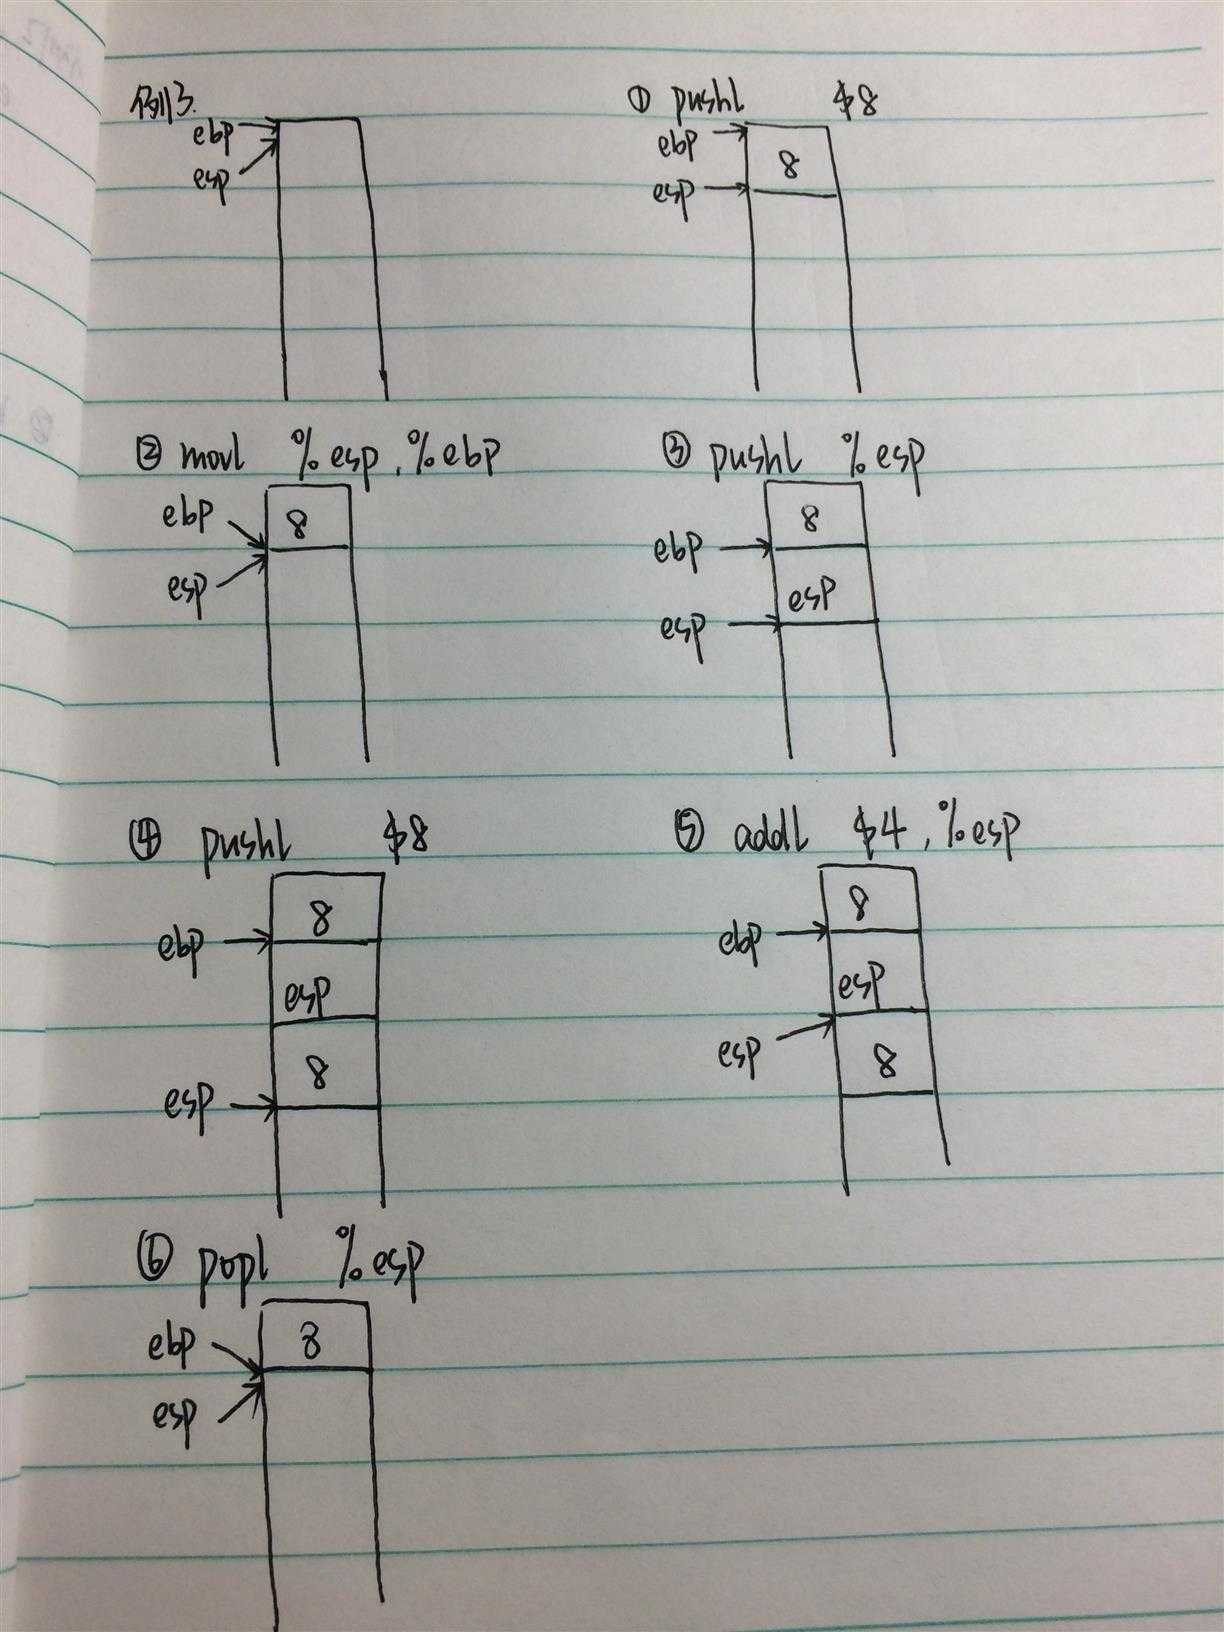 例3.
ebp
esp
① pushl $8
ebp
8
esp
② movl %esp, %ebp
ebp
8
esp
③ pushl %esp
8
ebp
esp
esp
④ pushl $8
8
ebp
esp
8
esp
⑤ addl $4, %esp
8
ebp
esp
esp
8
⑥ popl %esp
ebp
8
esp